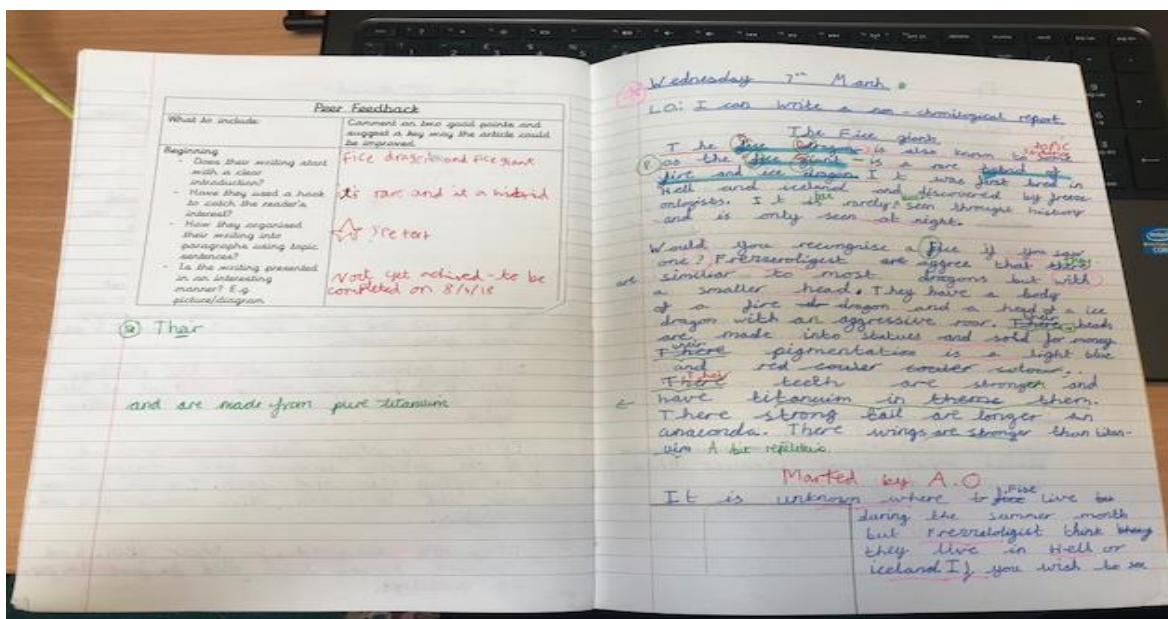 Peer Feedback
What to include
Comment on two good points and
suggest a key way the article could
be improved.
Beginning
- Does their writing start
with a clear
introduction?
- Have they used a hook
to catch the reader's
interest?
- How they organised
their writing into
paragraphs using topic
sentences?
- Is the writing presented
in an interesting
manner? E.g.
picture/diagram
Fice dragon and Fice giant
it's rare and it a
See text
Not yet - to be
completed on 8/4/18
Their
and are made from pure titanium
Wednesday 7th March
L.O: I can write a non-chronilogical report.
The Fice giant
The Fice Dragon is also known to some
topic
as the Fice Giant - is a rare hybrid of
fire and ice dragon It was first bred in
Hell and iceland and discovered by freeze
onlogists. It is rarely seen throught history
and is only seen at night.
Would you recongnise a Fice if you saw
one? are aggree that
are
similiar to most dragons but with
a smaller head. They have a body
of a fire dragon and a head of a ice
dragon with an aggressive roar. There heads
their
are made into statues and sold for money
their
There pigmentation is a light blue
and red colour.
Their
There teeth are stronger and
have titanuim in them.
There strong tail are longer an
anaconda. There wings are stronger than titan-
uim A bit repetetive.
Marked by A.O
It is unknown where to Fise live
during the summer month
but think
they live in Hell or
iceland If you wish to see